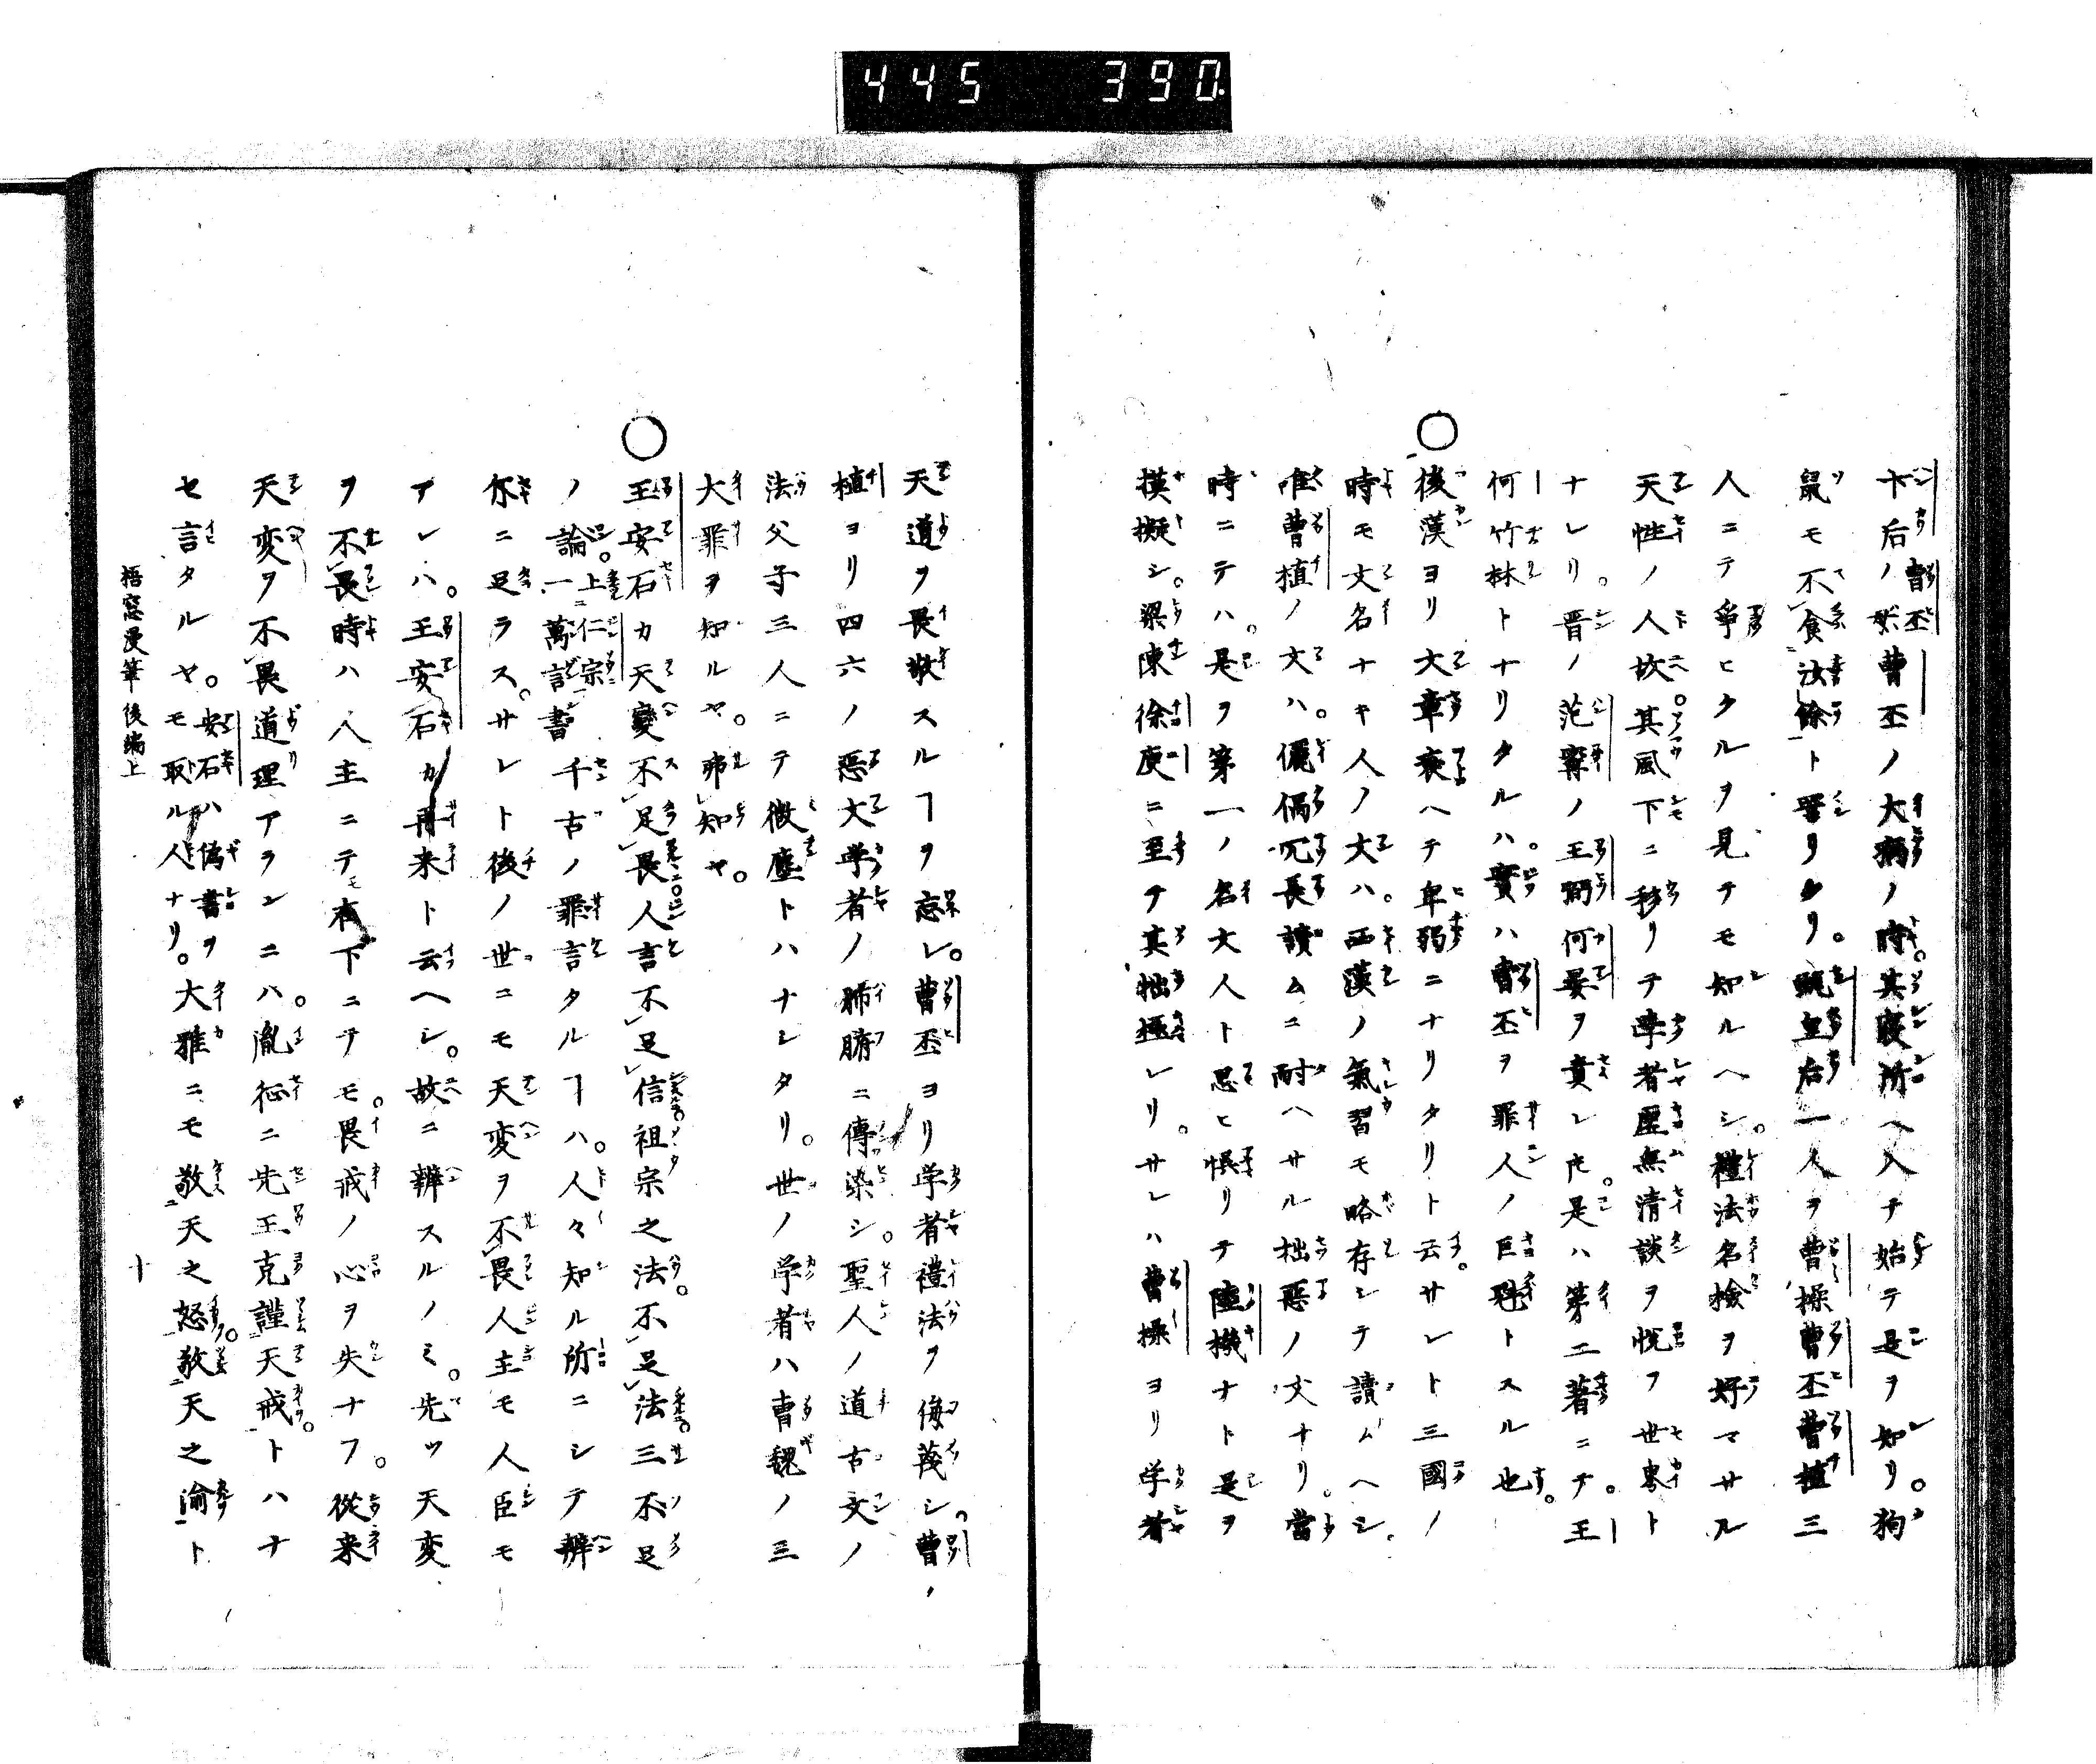 445 390
卞后ノ曹丕ノ大病ノ時。其寢所ヘ入テ始テ是ヲ知リ。狗
鼠モ不食汝餘ト詈リタリ。甄皇后一人ヲ曹操曹丕曹植三
人ニテ爭ヒタルヲ見テモ知ルヘシ。禮法名檢ヲ好マサル
天性ノ人故。其風下ニ移リテ學者虛無清談ヲ悅フ世界ト
ナレリ。晋ノ范甯ノ王弼何晏ヲ責レ𪜈。是ハ第二著ニテ。王
何竹林トナリタルハ。實ハ曹丕ヲ罪人ノ巨魁トスル也。
○
後漢ヨリ文章衰ヘテ卑弱ニナリタリト云。サレト三國ノ
時モ文名ナキ人ノ文ハ。西漢ノ氣習モ略存シテ讀ムヘシ。
唯曹植ノ文ハ。儷偶冗長讀ムニ耐ヘサル拙惡ノ文ナリ。當
時ニテハ。是ヲ第一ノ名文人ト思ヒ悞リテ陸機ナト是ヲ
摸擬シ。梁陳徐庾ニ至テ其拙極レリ。サレハ曹操ヨリ学者
天道ヲ畏敬スルヿヲ忘レ。曹丕ヨリ学者禮法ヲ侮蔑シ。曹
植ヨリ四六ノ惡文学者ノ肺腑ニ傳染シ。聖人ノ道古文ノ
法父子三人ニテ微塵トハナシタリ。世ノ学者ハ曹魏ノ三
大罪ヲ知ルヤ。弗知ヤ。
○
王安石カ天變不足畏人言不足信祖宗之法。不足法三不足
ノ論。上仁宗一萬言書千古ノ罪言タルヿハ。人々知ル所ニシテ辨
尓ニ足ラス。サレト後ノ世ニモ天変ヲ不畏人主モ人臣モ
アレハ。王安石カ再来ト云ヘシ。故ニ辨スルノミ。先ツ天変
ヲ不畏時ハ人主ニテモ在下ニテモ。畏戒ノ心ヲ失ナフ。從来
天変ヲ不畏道理アランニハ。胤征ニ先王克謹天戒。トハナ
セ言タルヤ。安石ハ偽書ヲモ取ル人ナリ。大雅ニモ敬天之怒。敬天之渝ト
梧窓漫筆後編上
十